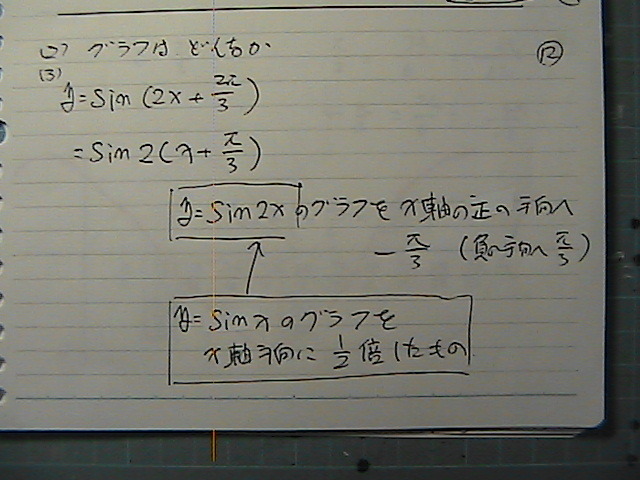 (2) グラフは どくちか
⑫
(3)
y=Sin (2x+2π/3)
=Sin 2(x+π/3)
y=Sin2x のグラフを x軸の正の方向へ
-π/3 (負の方向へ π/3)
y=Sinxのグラフを
x軸方向に 1/2 倍したもの